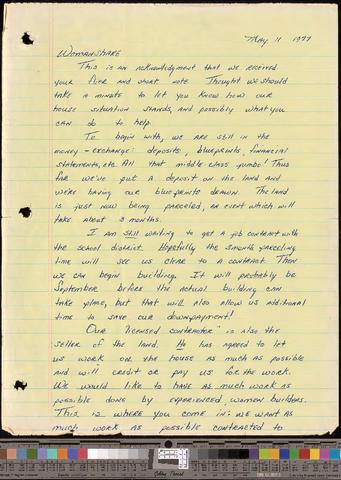 May 11 1977
WomanShare
This is an acknowledgment that we received
your flier and short note. Thought we should
take a minute to let you know how our
house situation stands, and possibly what you
can do to help.
To begin with, we are still in the
money-exchange: deposits, blueprints, financial
statements, etc. All that middle class jumbo! Thus
far we've put a deposit on the land and
we're having our blueprints drawn. The land
is just now being parceled, an event which will
take about 3 months.
I am still waiting to get a job contract with
the school district. Hopefully the 3 month parceling
time will see us clear to a contract. Then
we can begin building. It will probably be
September before the actual building can
take place, but that will also allow us additional
time to save our downpayment!
Our "licensed contractor" is also the
seller of the land. He has agreed to let
us work on the house as much as possible
and will credit or pay us for the work.
We would like to have as much work as
possible done by experienced women builders.
This is where you come in: we want as
much work as possible contracted to